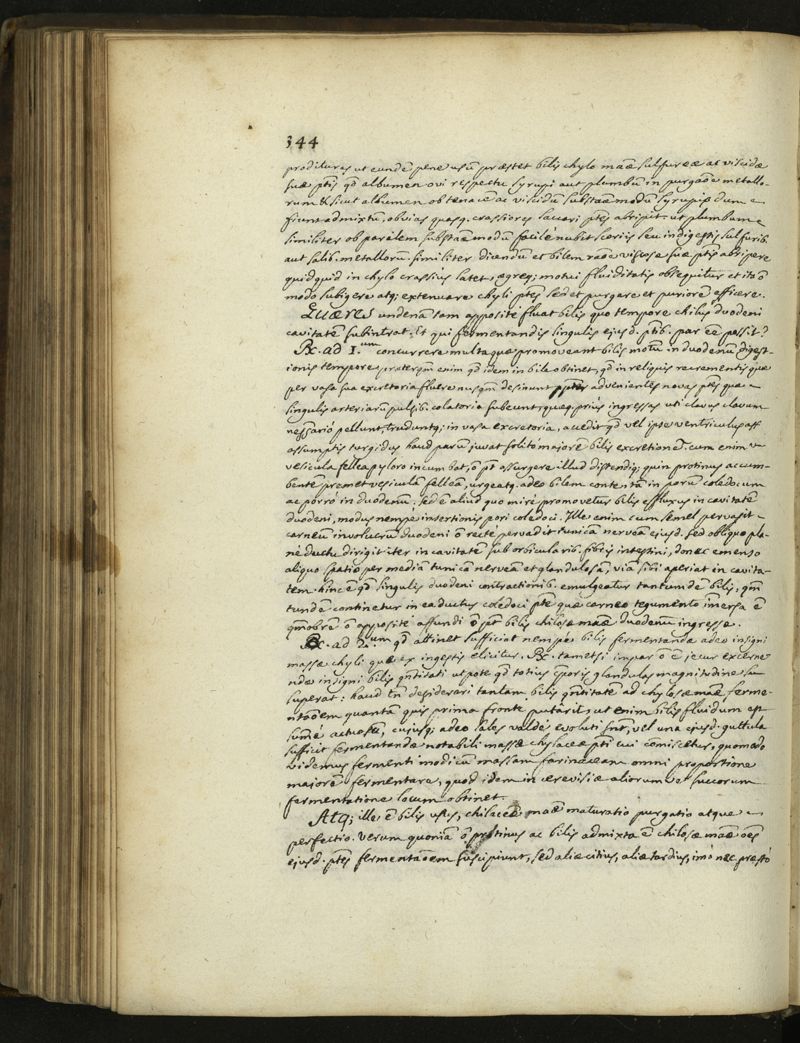 344
prodituras ut eundē pene usū præstet bilis chylo maæ sulfureæ ac viscidæ
suæ ptis qd albumen ovi respectu syrupi aut plumbū in purgaōe metallo-
rum & sicut albumen ob tenace ac viscidū substāæ modū syrupis dum
fiunt admixtū, obvias quasq. crassiores saccari ptes abripit, ut plumbum
similiter ob parilem substāæ modū facilè nubit scoriis seu indigestis sulfurib.
aut salib. metallorū. similiter dicendū et bilem raōe viscosæ suæ ptis abripere
quidquid in chylo crassius latet, ægreq; motui fluiditatis obsequitur et itā ō
modo subigere atq; extenuare chyli ptes sed et purgare et puriorē efficere.
Quæres undenā tam apposité fluat bilis quo tempore chilus duodeni
cavitatē subintrat. Et qui fermentandis singulis ejusd. ptib. par eē possit?
℞. ad 1.um concurrere multa quæ promoveant bilis motū in duodenū digest-
ionis tempore præterqm enim qd idem in bile obtinet, qd in reliquis recrementis quæ
per vasa sua excretoria fluere nusqm desinunt ppter advenientes novas ptes quæ
singulis arteriarū pulsib. colatoria subeunt, queq. prius ingressas uti clavus clavum
nessārió pellunt, truduntq; in vasa excretoria, accedit qd vel ipse ventriculus
assumptis turgidus haud parū juvat solitó majorē bilis excretionē. cum enim
vesicula fellea pyloro incumbat, ō pt assurgere illud distendiq; quin protinus accum-
bentē premet vesiculā felleā, urgeatq. adeo bilem contentā in porū coledocum
ac porró in duodenū. sed ē aliud quo miré promovetur bilis effluxus in cavitatē
duodeni, modus nempé insertionis pori coledoci. Ille enim cum semel pervasit
carneū involucrū duodeni ō recté pervadit tunicā nerveā ejusd. sed obliquo pla-
né ductu dirigit iter in cavitatē sub orbicularib. fibris intestini, donec emenso
aliquo spatio per mediā tunicā nerveā et glandulosā, viā sibi aperiat in cavita-
tem. hinc ē qd singulis duodeni contractionib. emulgeatur tantumdē bilis, qm
tundē continetur in ea ductus coledoci pte quæ carneo tegumento imersa ē
qmobrē ō apposité affundi ō pt bilis chilosæ maæ duodenū ingressæ.
℞. ad 2.um qd attinet sufficiat nempè bilis fermentandæ adeo insigni
massæ chyli quæ ex ingestis elicitur. ℞. tametsi impar ō ē jecur excerne
ndæ insigni bilis qntitati utpote qd totius corporis glandulas magnitudine
superat: haud tn desiderari tantam bilis qntitatē ad chylosæ maæ ferme-
ntāoem quantā quis prima fronte putàrit, ut enim bilis fluidum est
sumé actuosū, cujusq; adeo sales valdè evoluti snt, vel una ejusd. guttula
sufficit fermentandæ notabili massæ chylaceæ pti cui comiscetur, quomodo
videmus fermenti modicū massam farinaceam omni proportione
majorē fermentare, quod idem in cerevisiæ aliorum ve succorum
fermentatione locum obtinet.
Atq; ille ē bilis usus, chilaceæ maæ maturatio purgatio atque
perfectio. verum quoniā ō protinus ac bilis admixta ē chilosæ maæ oēs
ejusd. ptes fermentāoem suscipiunt, sed aliæ citius, aliæ tardius, imo nec præstó